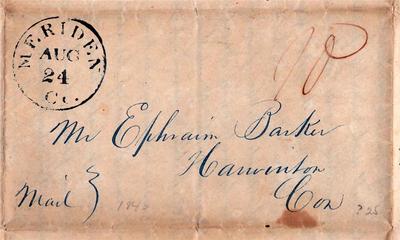 MERIDEN
AUG
24
Co.
10
Mr Ephraim Barker
Harwinton
Mail
Con
1840
? 25